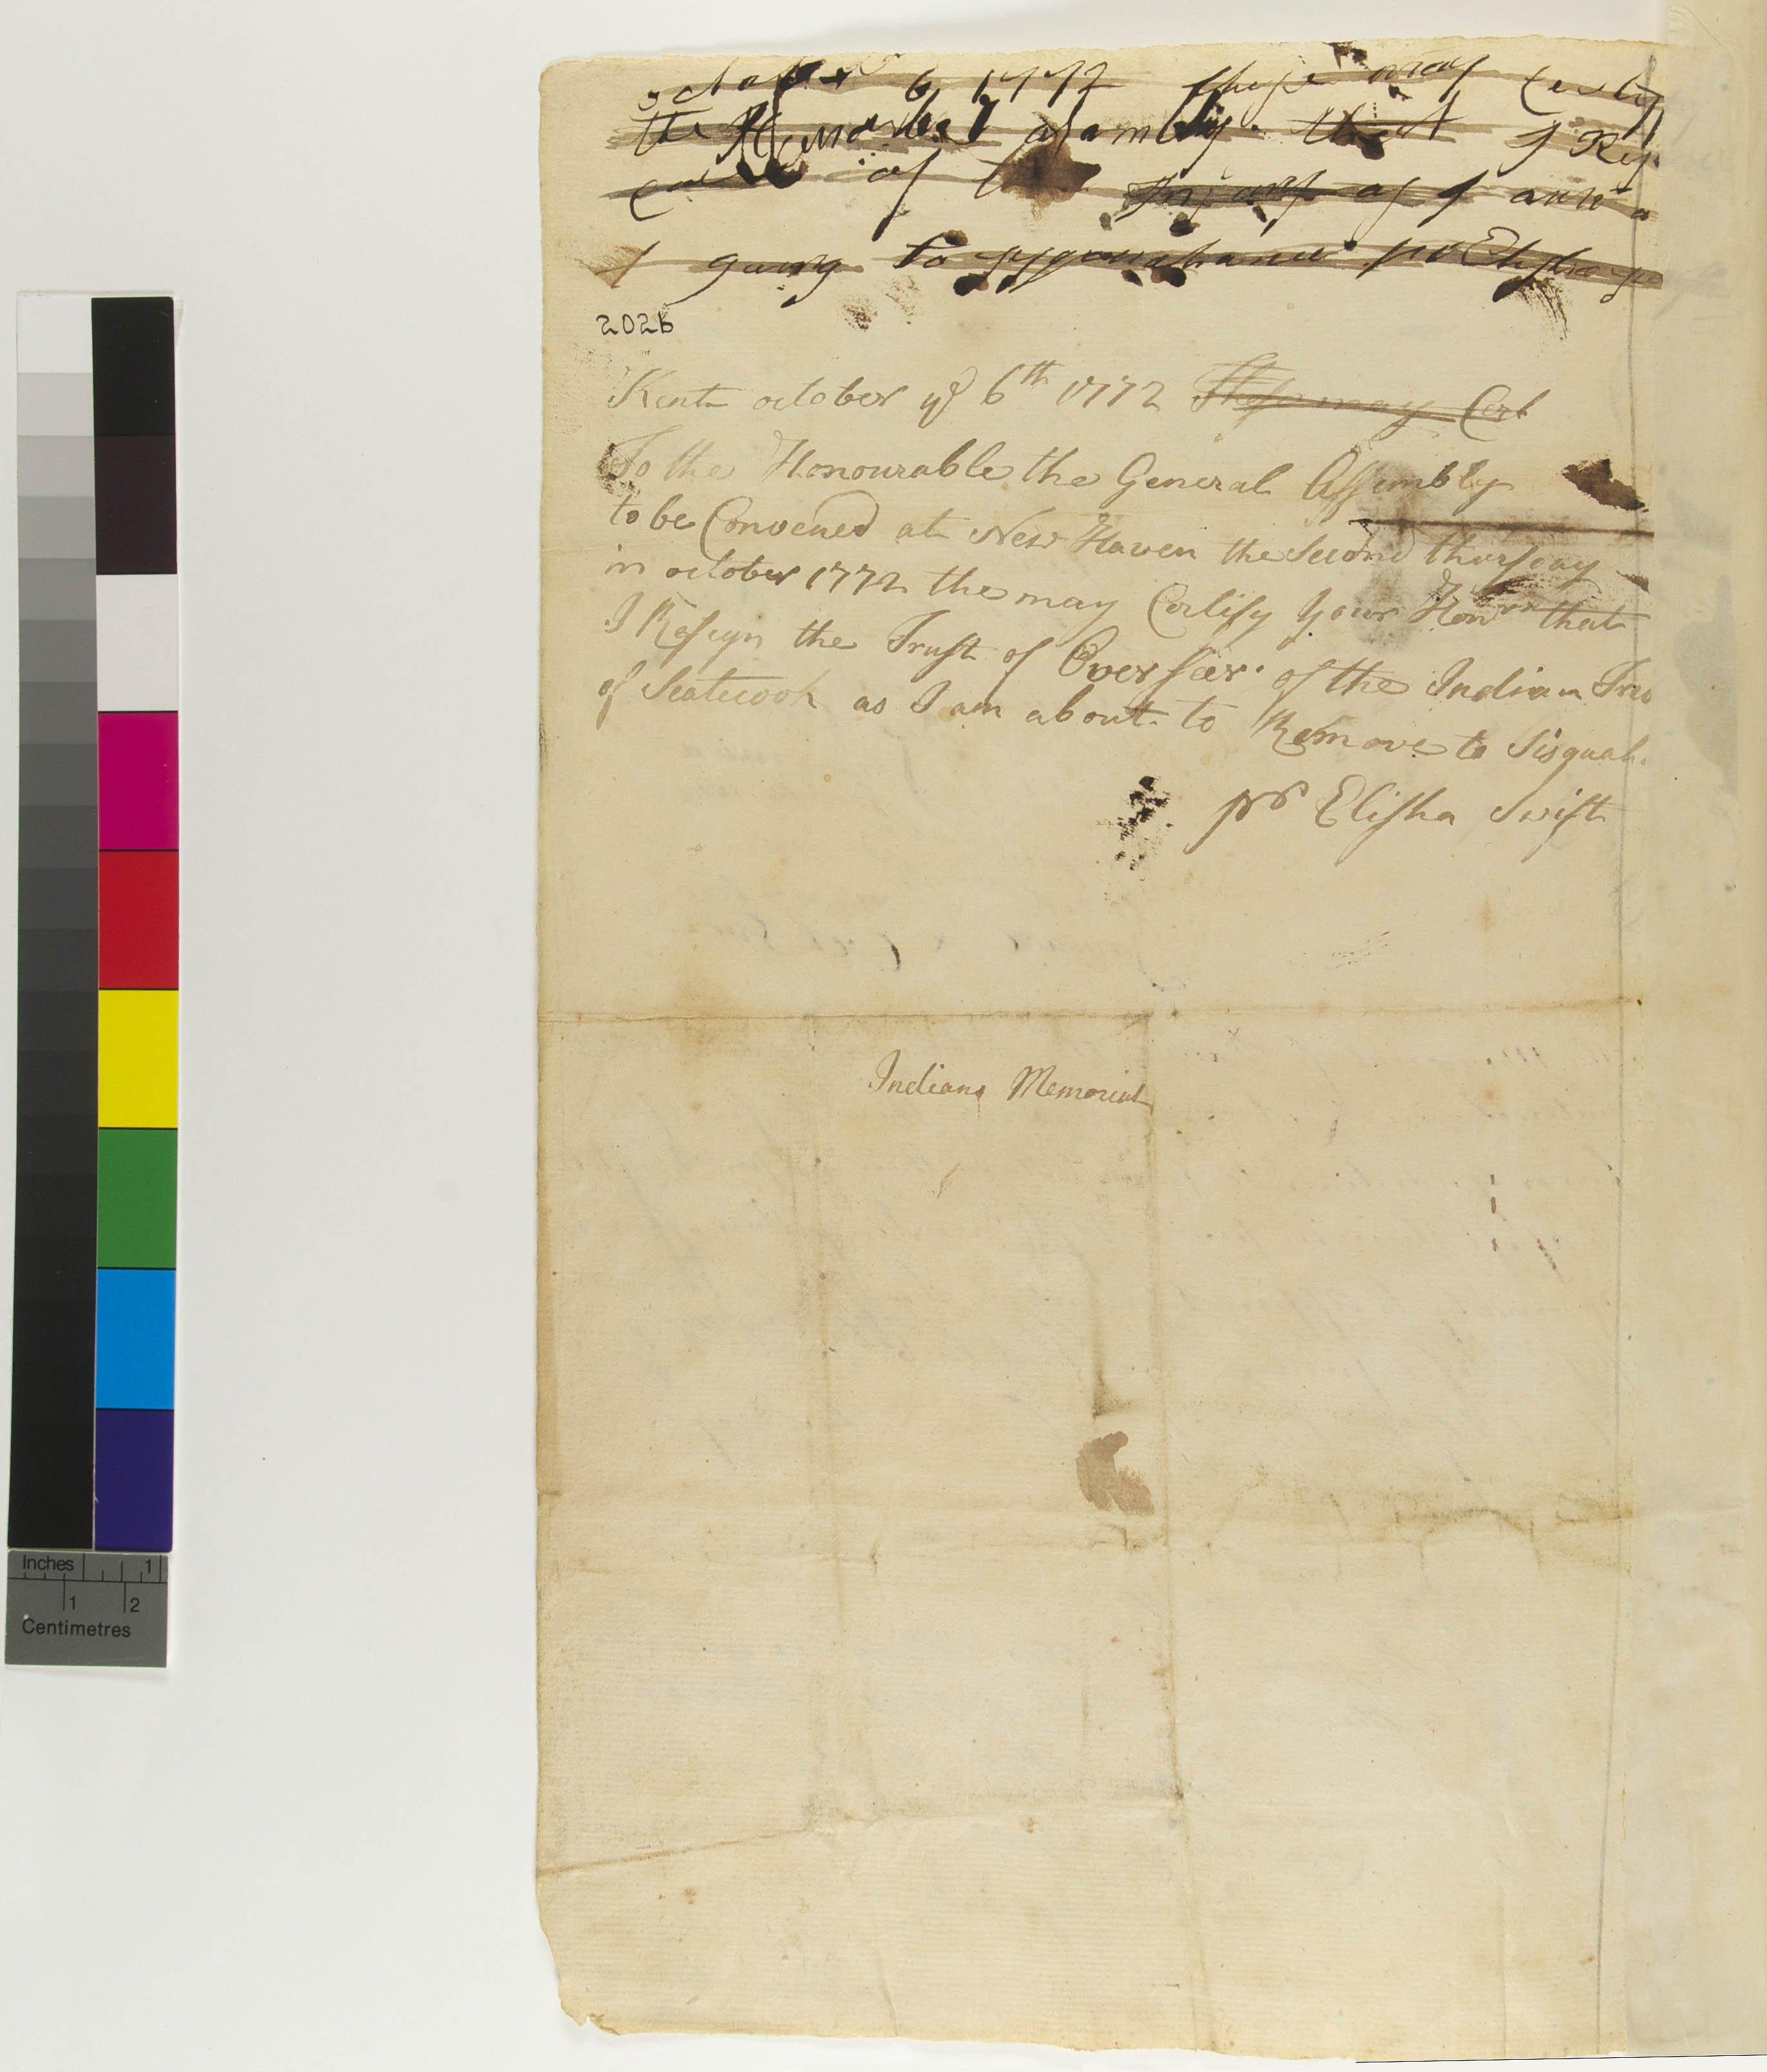 october 6 1772 these may Certify
the Honorbel asambly that I Res
of the
I going to pr Elisha
202b
Kent october ye 6th 1772 These may Cert
To the Honourable the General Assembly
to be Convened at New Haven the Second thursday
in october 1772 the may Certify your Honrs that
I Resign the Trust of Overseer of the Indian Tribe
of Scatecook as I am about to Remove to Sisquah.
pr Elisha Swift
Indians Memorial
Inches 1
1 2
Centimetres